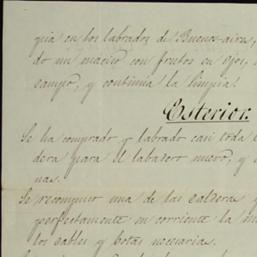 guia en los labrados de Buenos-aires,
do un macizo con frutos en ojos,
campo, y continua la limpia.
Esterior.
Se ha comprado y labrado casi toda
dera para el labadero nuevo, y
nas.
Se recompuso una de las calderas y
perfectamente en corriente la
los cables y botas necesarias.